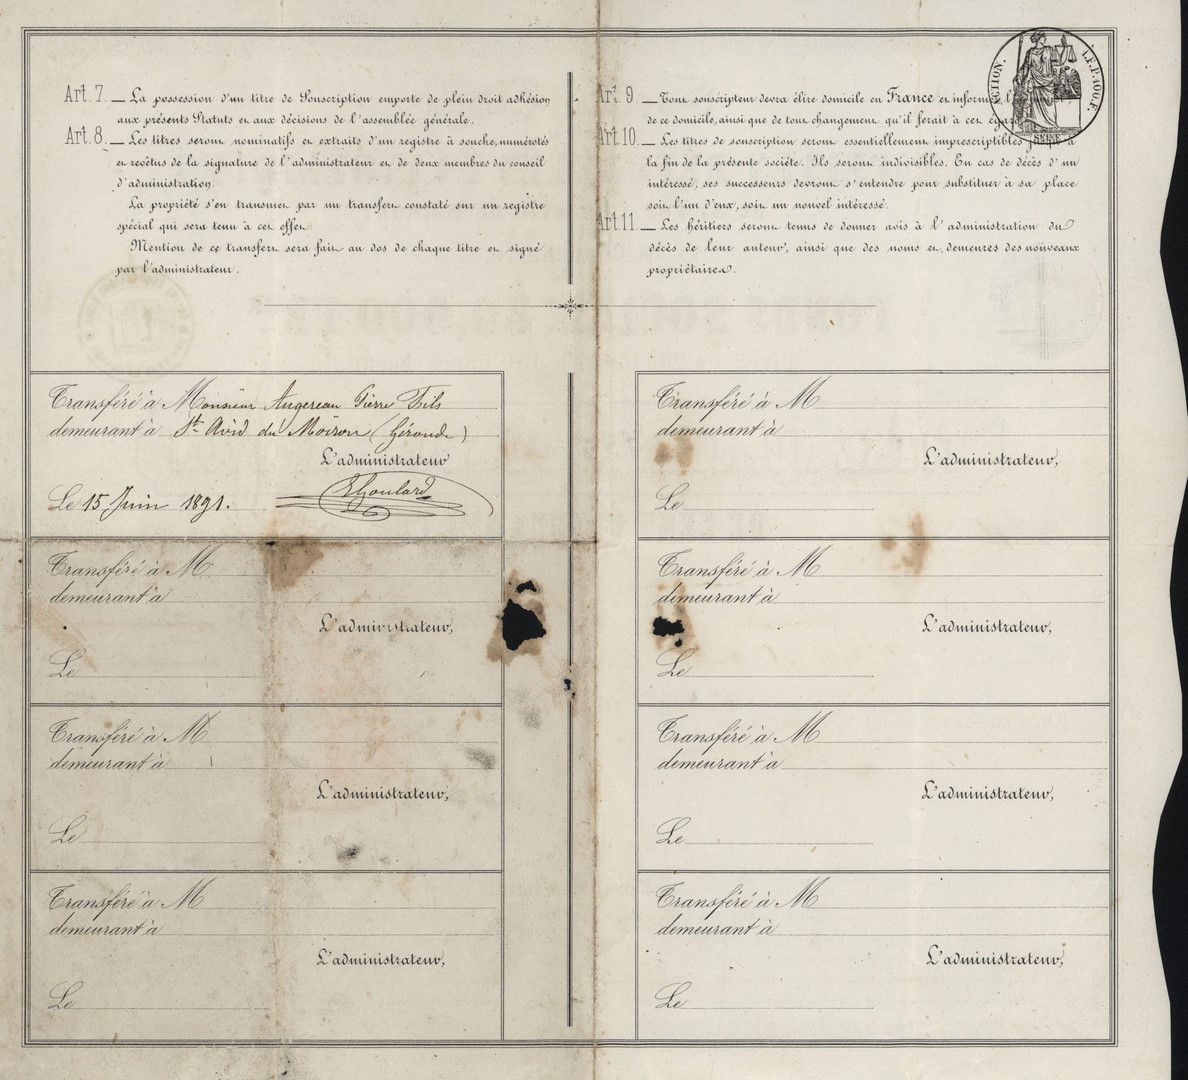 Art. 7. — La possession d'un titre de Souscription emporte de plein droit adhésion
aux présents Statuts et aux décisions de l'assemblée générale.
Art. 8. — Les titres seront nominatifs et extraits d'un registre à souche, numérotés
et revêtus de la signature de l'administrateur et de deux membres du conseil
d'administration.
La propriété s'en transmet par un transfert constaté sur un registre
spécial qui sera tenu à cet effet.
Mention de ce transfert sera fait au dos de chaque titre et signé
par l'administrateur.
Art. 9. — Tout souscripteur devra élire domicile en France et informer
de ce domicile, ainsi que de tout changement qu'il ferait à cet égard
Art. 10. — Les titres de souscription seront essentiellement imprescriptibles jusqu'à
la fin de la présente société. Ils seront indivisibles. En cas de décès d'un
intéressé, ses successeurs devront s'entendre pour substituer à sa place
soit l'un d'eux, soit un nouvel intéressé.
Art. 11. — Les héritiers seront tenus de donner avis à l'administration du
décès de leur auteur, ainsi que des noms et demeures des nouveaux
propriétaires.
SEINE
Transféré à Monsieur Augereau Pierre Fils
demeurant à St. Avid du Moiron (Gironde)
L'administrateur
Le 15 Juin 1891.
EGoulard
Transféré à M
demeurant à
L'administrateur,
Le
Transféré à M
demeurant à
L'administrateur,
Le
Transféré à M
demeurant à
L'administrateur,
Le
Transféré à M
demeurant à
L'administrateur,
Le
Transféré à M
demeurant à
L'administrateur,
Le
Transféré à M
demeurant à
L'administrateur,
Le
Transféré à M
demeurant à
L'administrateur,
Le